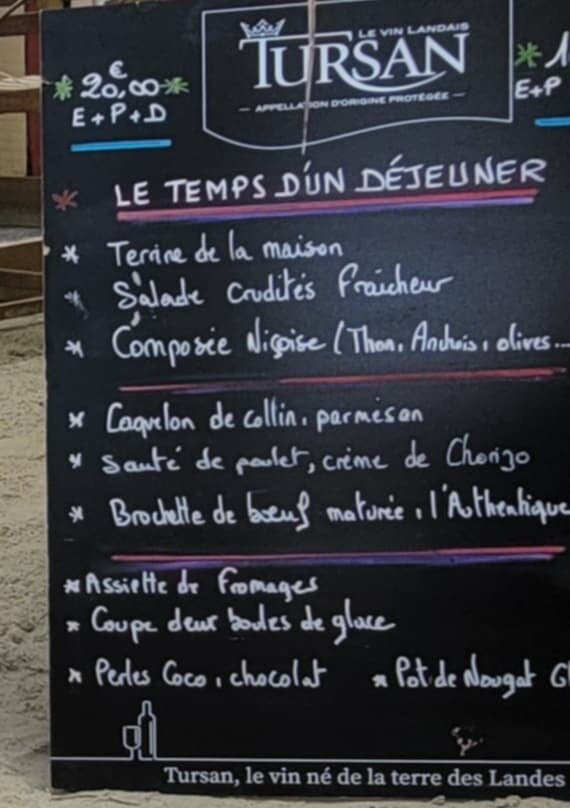 €
20,00
E+P+D
LE VIN LANDAIS
TURSAN
— APPELLATION D'ORIGINE PROTÉGÉE —
E+P
LE TEMPS D'UN DÉJEUNER
* Terrine de la maison
* Salade Crudités Fraîcheur
* Composée Niçoise (Thon, Anchois, olives...
* Caquelon de collin, parmesan
* Sauté de poulet, crème de Chorizo
* Brochette de bœuf maturée, l'Authentique
* Assiette de fromages
* Coupe deux boules de glace
* Perles Coco, chocolat * Pot de Nougat
Tursan, le vin né de la terre des Landes